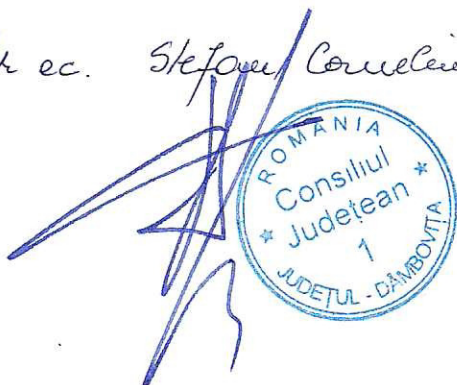 ec. Ștefan Corneliu
ROMÂNIA
Consiliul
Județean
1
JUDEȚUL - DÂMBOVIȚA